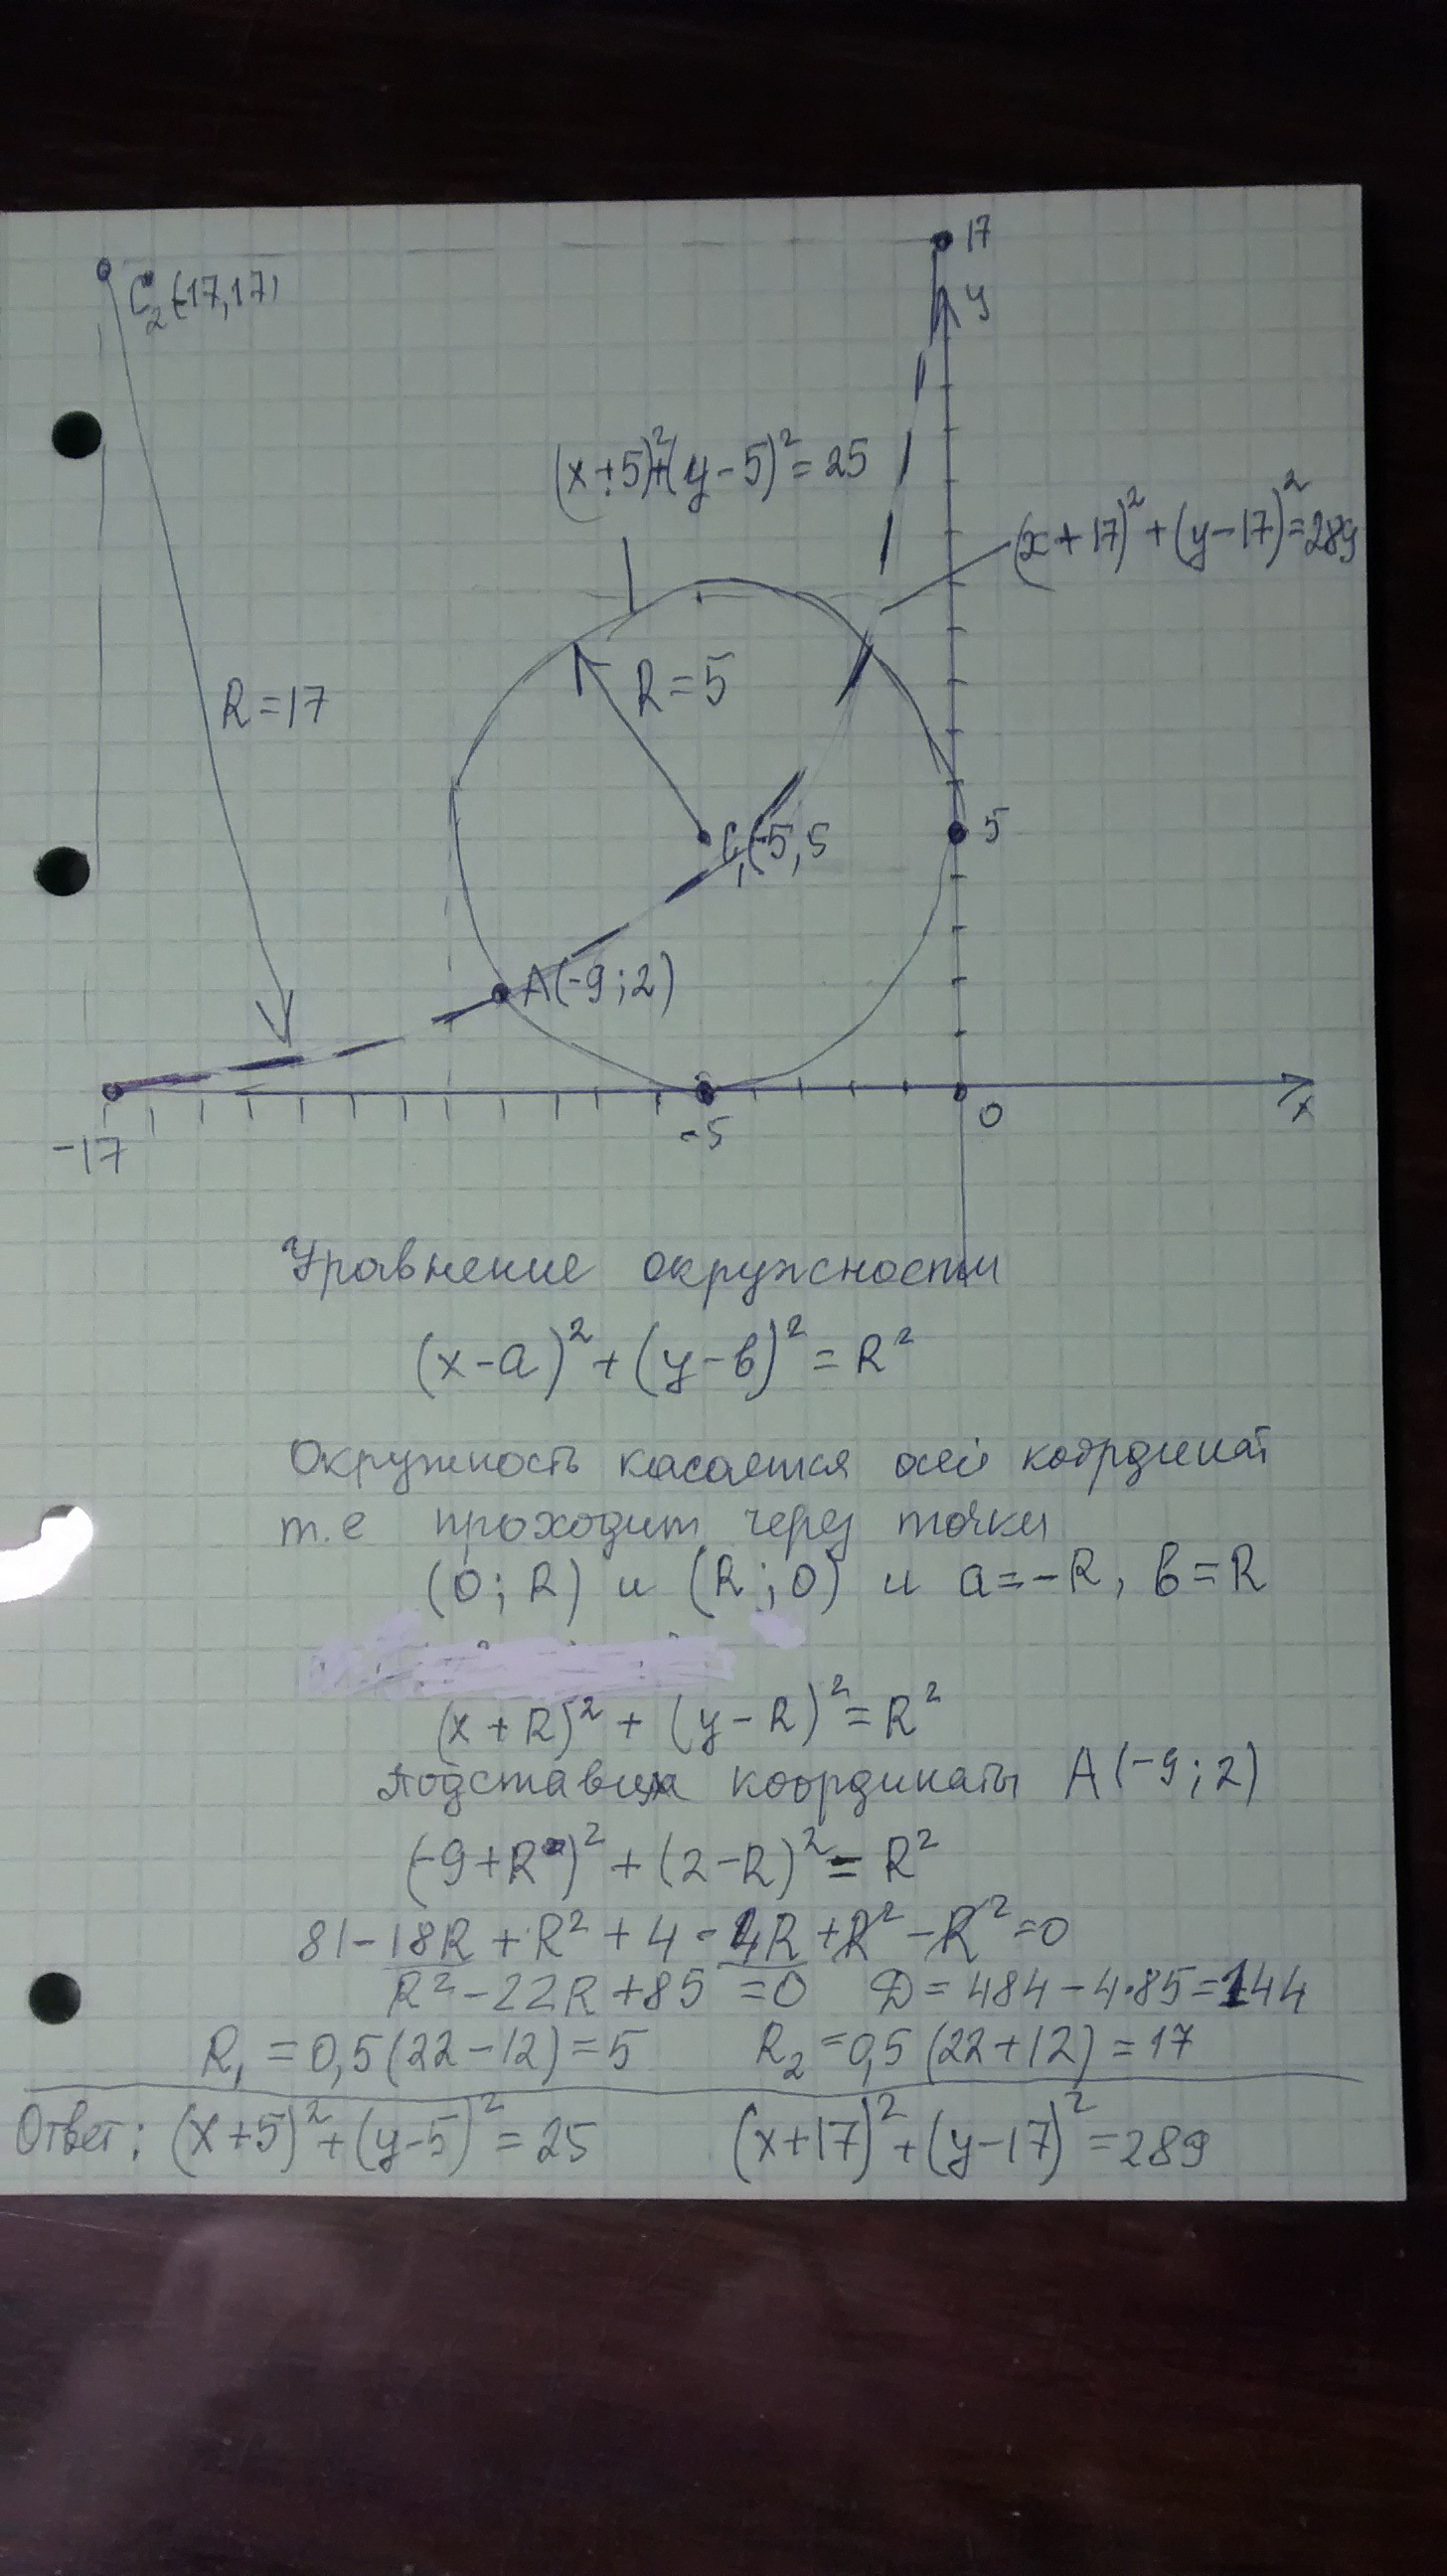 17
y
C₂(-17,17)
(x+5)²+(y-5)²=25
(x+17)²+(y-17)²=289
R=5
R=17
C₁(-5,5
5
A(-9;2)
-17
-5
0
x
Уравнение окружности
(x-a)²+(y-в)²=R²
Окружность касается осей координат
т.е проходит через точки
(0;R) и (R;0) и a=-R, в=R
(x+R)²+(y-R)²=R²
Подставим координаты A(-9;2)
(-9+R)²+(2-R)²=R²
81-18R+R²+4-4R+R²-R²=0
R²-22R+85=0 Д=484-4·85=144
R₁=0,5(22-12)=5 R₂=0,5(22+12)=17
Ответ: (x+5)²+(y-5)²=25 (x+17)²+(y-17)²=289